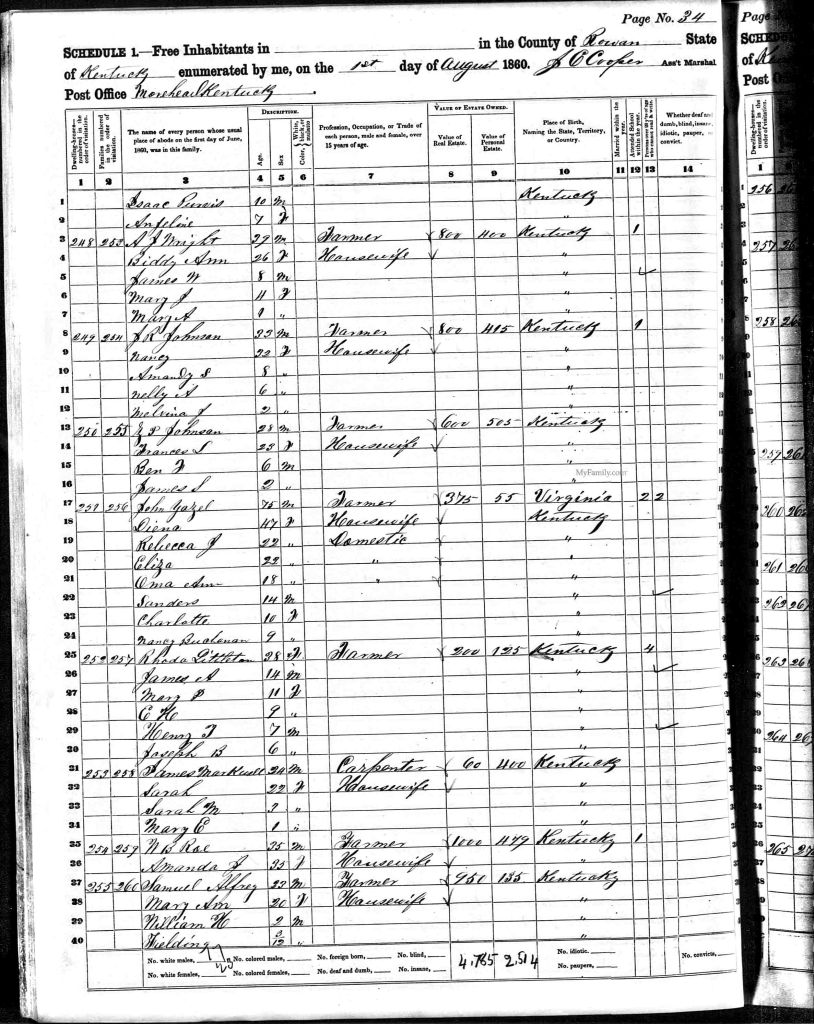 Page No. 34
SCHEDULE 1.—Free Inhabitants in in the County of Rowan State
of Kentucky enumerated by me, on the 1st day of August 1860. J C Cooper Ass't Marshal
Post Office Morehead Kentucky
DESCRIPTION. VALUE OF ESTATE OWNED.
Dwelling-houses—numbered in the order of visitation. Families numbered in the order of visitation. The name of every person whose usual place of abode on the first day of June, 1860, was in this family. Age. Sex Color, White, black, or mulatto Profession, Occupation, or Trade of each person, male and female, over 15 years of age. Value of Real Estate. Value of Personal Estate. Place of Birth, Naming the State, Territory, or Country. Married within the year. Attended School within the year. Whether deaf and dumb, blind, insane, idiotic, pauper, or convict.
1 2 3 4 5 6 7 8 9 10 11 12 13 14
1 Isaac Purvis 10 m Kentucky
2 Anfeline 7 f "
3 248 253 A J Wright 29 m Farmer 800 400 Kentucky 1
4 Biddy Ann 26 f Housewife "
5 James W 8 m "
6 Mary J 11 f "
7 Mary A 1 " "
8 249 254 J R Johnson 23 m Farmer 800 415 Kentucky 1
9 Nancy 22 f Housewife "
10 Amandy S 8 " "
11 Nelly A 6 " "
12 Melvina J 2 " "
13 250 255 Johnson 28 m Farmer 600 505 Kentucky
14 Frances S 23 f Housewife "
15 Ben F 6 m "
16 James S 2 " "
MyFamily.com
17 251 256 John Gazel 75 m Farmer 375 55 Virginia 2 2
18 Diena 47 f Housewife Kentucky
19 Rebecca J 22 " Domestic "
20 Eliza 22 " " "
21 Oma Ann 18 " " "
22 Sanders 14 m "
23 Charlotte 10 f "
24 Nancy Buchenan 9 " "
25 252 257 Rhoda Littleton 38 f Farmer 200 125 Kentucky 4
26 James A 14 m "
27 Mary P 11 f "
28 E H 9 " "
29 Henry T 7 m "
30 Joseph B 6 " "
31 253 258 James Markwell 24 m Carpenter 60 400 Kentucky
32 Sarah 22 f Housewife "
33 Sarah M 3 " "
34 Mary E 1 " "
35 254 259 W B Roe 35 m Farmer 1000 479 Kentucky 1
36 Amanda J 35 f Housewife "
37 255 260 Samuel Alfrey 23 m Farmer 950 135 Kentucky
38 Mary Ann 20 f Housewife "
39 William H 2 m "
40 Fielding 3/12 " "
No. white males, No. colored males, No. foreign born, No. blind, 4,785 2,514 No. idiotic. No. convicts,
No. white females, No. colored females, No. deaf and dumb, No. insane, No. paupers,